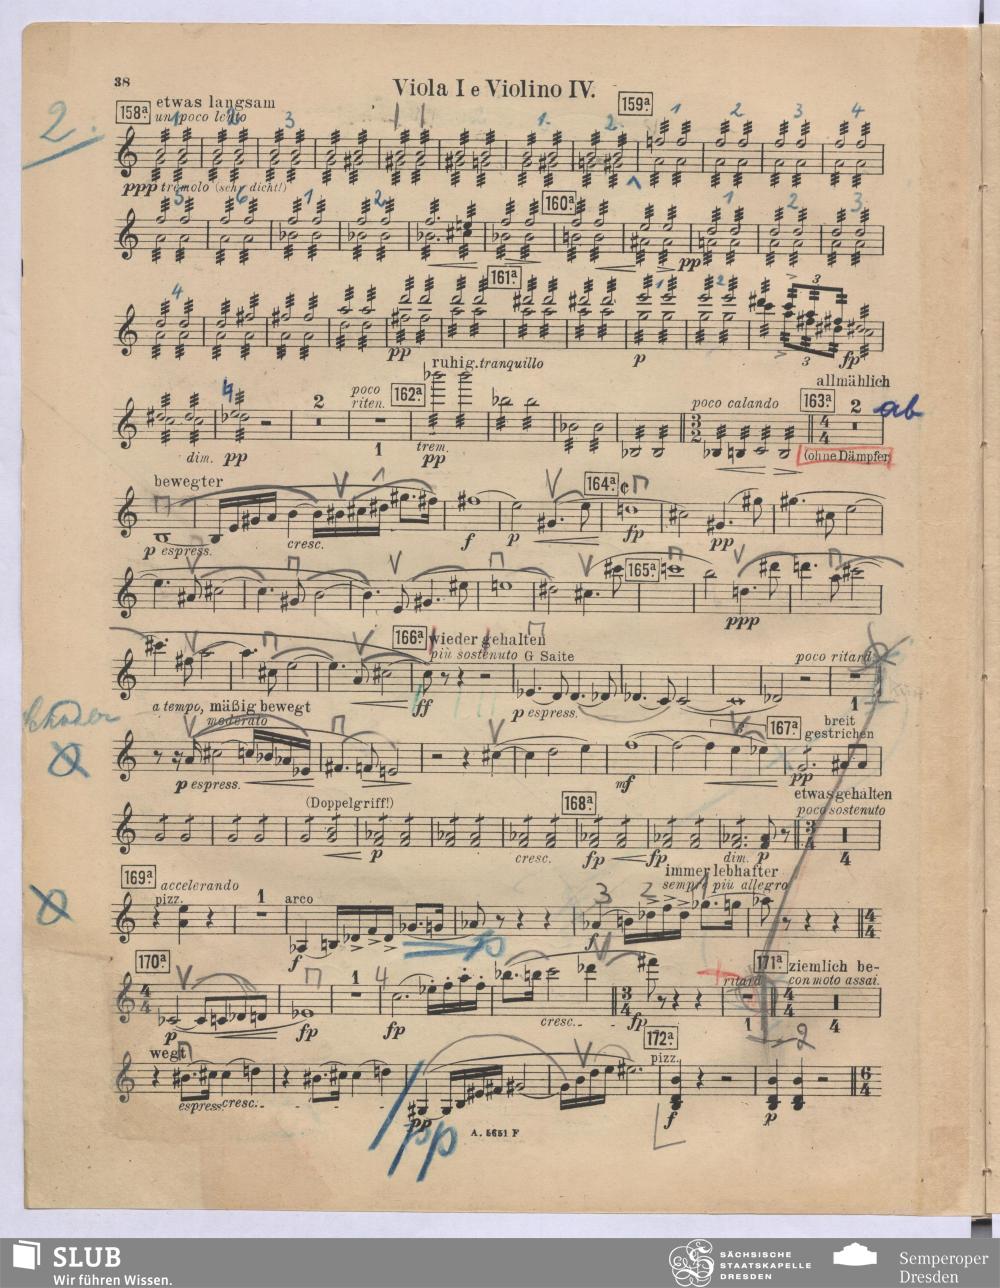 38
Viola I e Violino IV.
2.
158ª etwas langsam
un poco lento
159ª
1 2 3 1. 2. 1 2 3 4
ppp tremolo (sehr dicht!)
5 6 1 2 160ª 1 2 3
pp
4 161ª 1 2 3
pp p 3 fp
ruhig. tranquillo allmählich
4 2 poco riten. 162ª poco calando 163ª 2 ab
dim. pp 1 trem. pp (ohne Dämpfer)
bewegter 164ª
p espress. cresc. f p fp pp
165ª
ppp
166ª wieder gehalten
più sostenuto G Saite poco ritard.
ff p espress. 1
a tempo, mäßig bewegt
moderato 167ª breit gestrichen
p espress. mf pp
etwas gehalten
(Doppelgriff!) 168ª poco sostenuto
p cresc. fp fp dim. p 4
169ª accelerando immer lebhafter
sempre più allegro
pizz. 1 arco 3 2 1
f p f
170ª 1 4 171ª ziemlich be-
ritard. con moto assai.
p fp fp cresc. fp 1 4
2
wegt 172ª
pizz.
espress. cresc. pp f p
pp
A. 5651 F
SLUB
Wir führen Wissen.
SÄCHSISCHE
STAATSKAPELLE
DRESDEN
Semperoper
Dresden